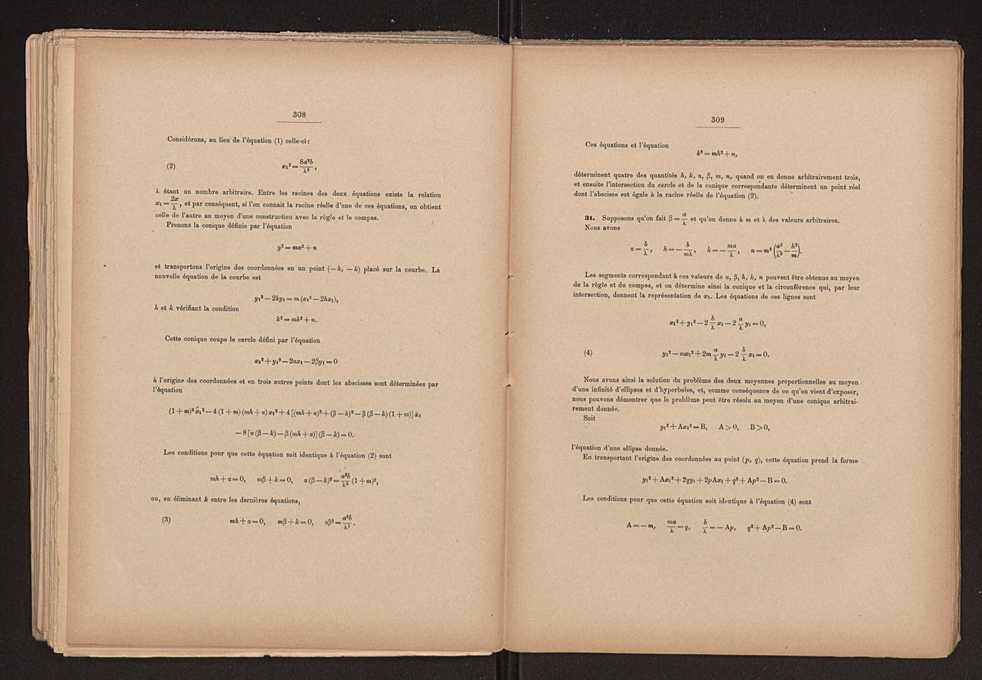 308
Considérons, au lieu de l'équation (1) celle-ci:
(2) x₁³ = 8a²b/λ³,
λ étant un nombre arbitraire. Entre les racines des deux équations existe la relation
x₁ = 2x/λ, et par conséquent, si l'on connaît la racine réelle d'une de ces équations, on obtient
celle de l'autre au moyen d'une construction avec la règle et le compas.
Prenons la conique définie par l'équation
y² = mx² + n
et transportons l'origine des coordonnées en un point (−h, −k) placé sur la courbe. La
nouvelle équation de la courbe est
y₁² − 2ky₁ = m (x₁² − 2hx₁),
h et k vérifiant la condition
k² = mh² + n.
Cette conique coupe le cercle défini par l'équation
x₁² + y₁² − 2αx₁ − 2βy₁ = 0
à l'origine des coordonnées et en trois autres points dont les abscisses sont déterminées par
l'équation
(1 + m)² x₁³ − 4 (1 + m) (mh + α) x₁² + 4 [(mh + α)² + (β − k)² − β (β − k) (1 + m)] x₁
− 8 [α (β − k) − β (mh + α)] (β − k) = 0.
Les conditions pour que cette équation soit identique à l'équation (2) sont
mh + α = 0, mβ + k = 0, α (β − k)² = a²b/λ³ (1 + m)²,
ou, en éliminant k entre les dernières équations,
(3) mh + α = 0, mβ + k = 0, αβ² = a²b/λ³.
309
Ces équations et l'équation
k² = mh² + n,
déterminent quatre des quantités h, k, α, β, m, n, quand on en donne arbitrairement trois,
et ensuite l'intersection du cercle et de la conique correspondante déterminent un point réel
dont l'abscisse est égale à la racine réelle de l'équation (2).
31. Supposons qu'on fait β = a/λ et qu'on donne à m et λ des valeurs arbitraires.
Nous avons
α = b/λ, h = − b/mλ, k = − ma/λ, n = m² (a²/λ² − b²/m).
Les segments correspondant à ces valeurs de α, β, h, k, n peuvent être obtenus au moyen
de la règle et du compas, et on détermine ainsi la conique et la circonférence qui, par leur
intersection, donnent la représentation de x₁. Les équations de ces lignes sont
x₁² + y₁² − 2 b/λ x₁ − 2 a/λ y₁ = 0,
(4) y₁² − mx₁² + 2m a/λ y₁ − 2 b/λ x₁ = 0.
Nous avons ainsi la solution du problème des deux moyennes proportionnelles au moyen
d'une infinité d'ellipses et d'hyperboles, et, comme conséquence de ce qu'on vient d'exposer,
nous pouvons démontrer que le problème peut être résolu au moyen d'une conique arbitrai-
rement donnée.
Soit
y₁² + Ax₁² = B, A > 0, B > 0,
l'équation d'une ellipse donnée.
En transportant l'origine des coordonnées au point (p, q), cette équation prend la forme
y₁² + Ax₁² + 2qy₁ + 2pAx₁ + q² + Ap² − B = 0.
Les conditions pour que cette équation soit identique à l'équation (4) sont
A = − m, ma/λ = q, b/λ = − Ap, q² + Ap² − B = 0.